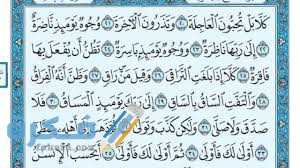 كَلَّا بَلْ تُحِبُّونَ ٱلْعَاجِلَةَ ٢٠ وَتَذَرُونَ ٱلْءَاخِرَةَ ٢١ وُجُوهٌ يَوْمَئِذٍ نَّاضِرَةٌ ٢٢
إِلَىٰ رَبِّهَا نَاظِرَةٌ ٢٣ وَوُجُوهٌ يَوْمَئِذٍۭ بَاسِرَةٌ ٢٤ تَظُنُّ أَن يُفْعَلَ بِهَا
فَاقِرَةٌ ٢٥ كَلَّآ إِذَا بَلَغَتِ ٱلتَّرَاقِىَ ٢٦ وَقِيلَ مَنْ رَاقٍ ٢٧ وَظَنَّ أَنَّهُ ٱلْفِرَاقُ
٢٨ وَٱلْتَفَّتِ ٱلسَّاقُ بِٱلسَّاقِ ٢٩ إِلَىٰ رَبِّكَ يَوْمَئِذٍ ٱلْمَسَاقُ ٣٠ فَلَا
صَدَّقَ وَلَا صَلَّىٰ ٣١ وَلَٰكِن كَذَّبَ وَتَوَلَّىٰ ٣٢ ثُمَّ ذَهَبَ إِلَىٰٓ أَهْلِهِۦ يَتَمَطَّىٰٓ
٣٣ أَوْلَىٰ لَكَ فَأَوْلَىٰ ٣٤ ثُمَّ أَوْلَىٰ لَكَ فَأَوْلَىٰٓ ٣٥ أَيَحْسَبُ ٱلْإِنسَٰنُ